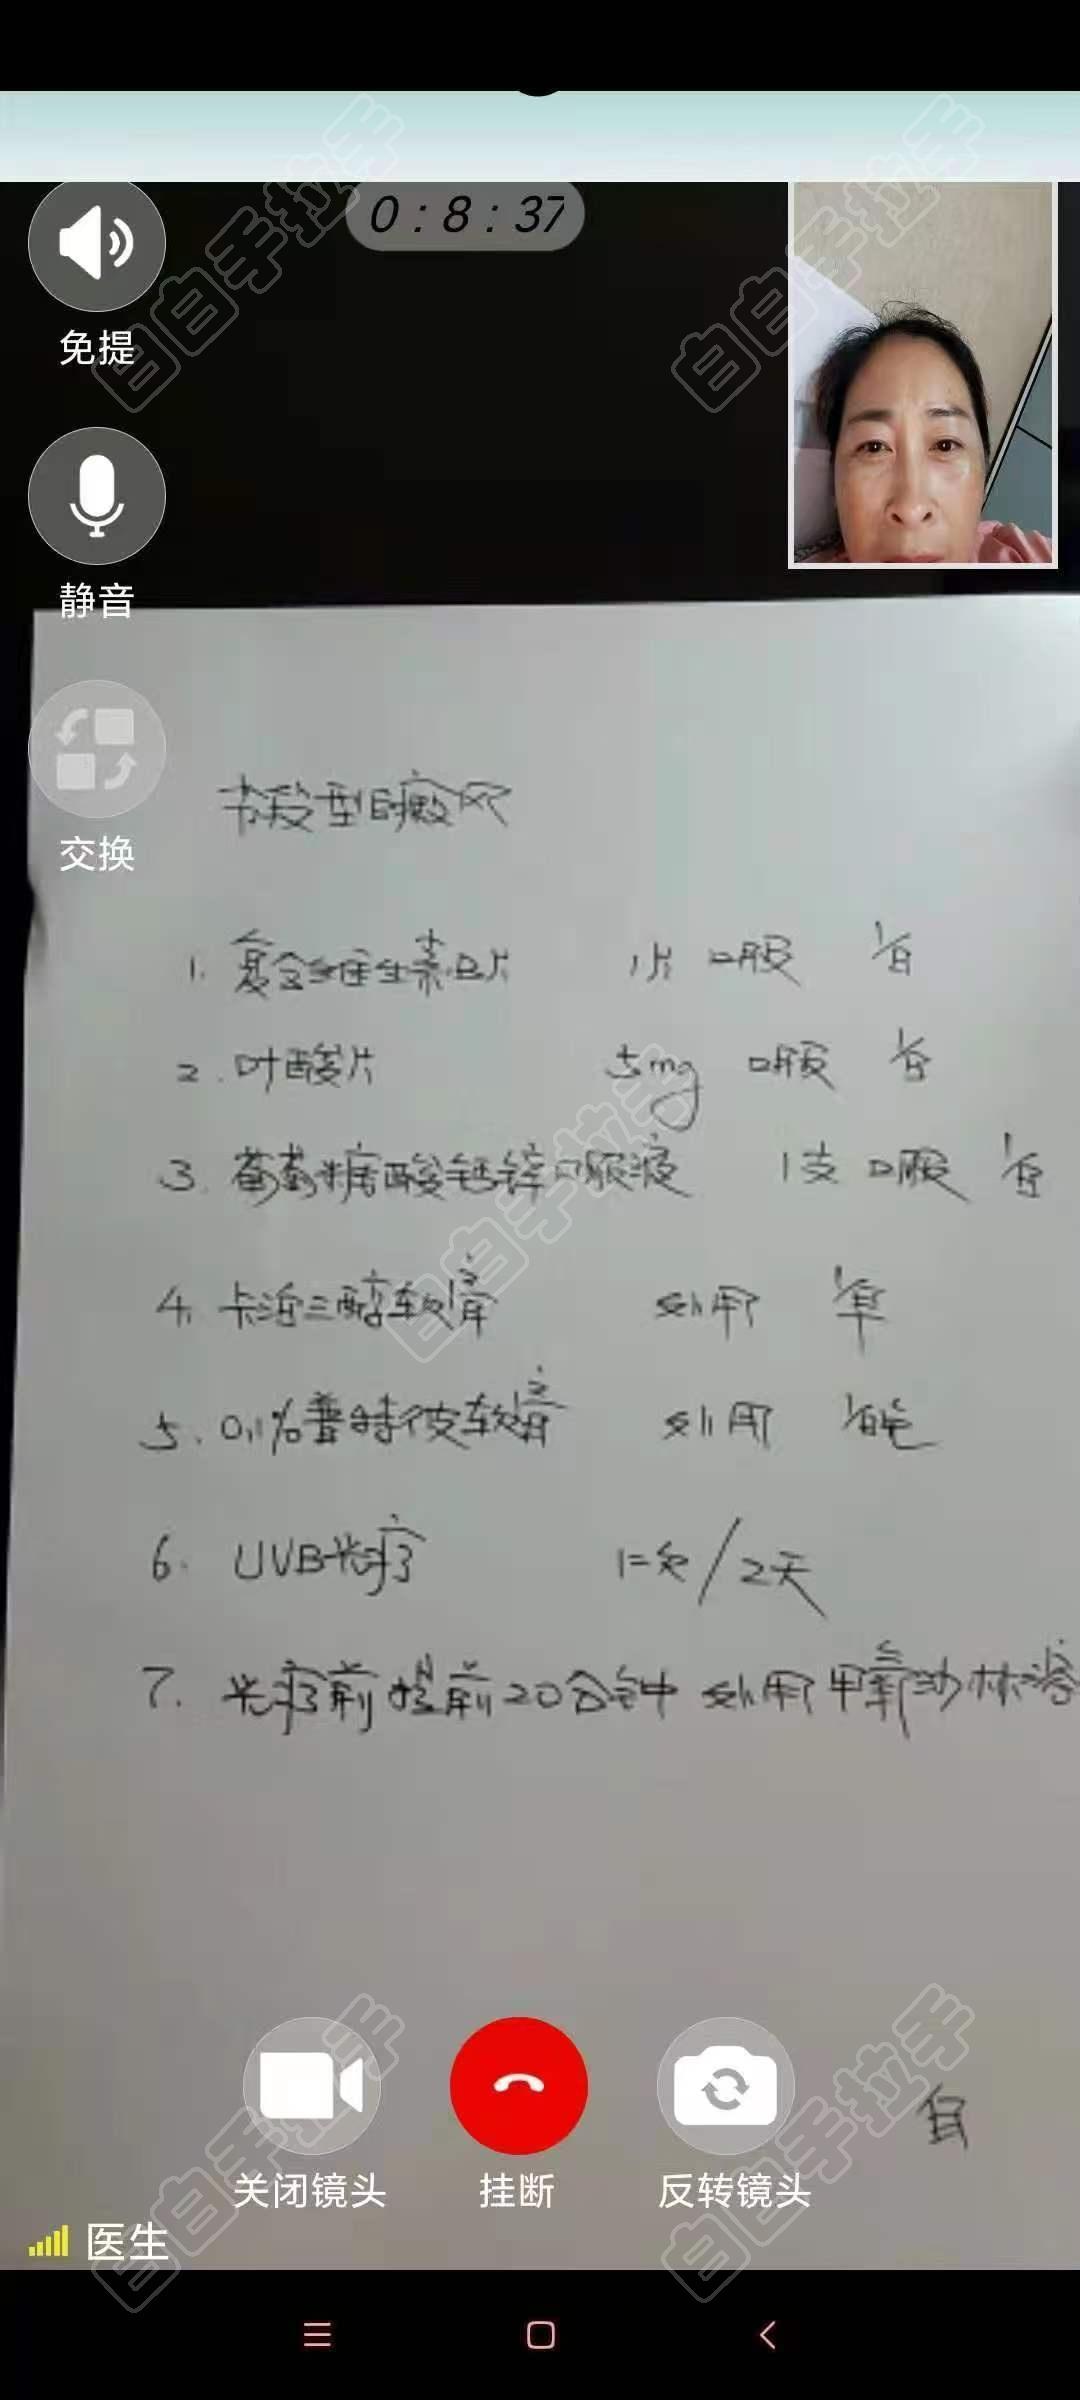 0:8:37
免提
静音
交换
节段型白癜风
1. 复合维生素B片 1片 口服 1/日
2. 叶酸片 5mg 口服 1/日
3. 葡萄糖酸钙锌口服液 1支 口服 1/日
4. 卡泊三醇软膏 外用 1/早
5. 0.1%普特彼软膏 外用 1/晚
6. UVB光疗 1次/2天
7. 光疗前提前20分钟 外用甲氧沙林溶
关闭镜头
挂断
反转镜头
医生
白白手拉手
白白手拉手
白白手拉手
白白手拉手
白白手拉手